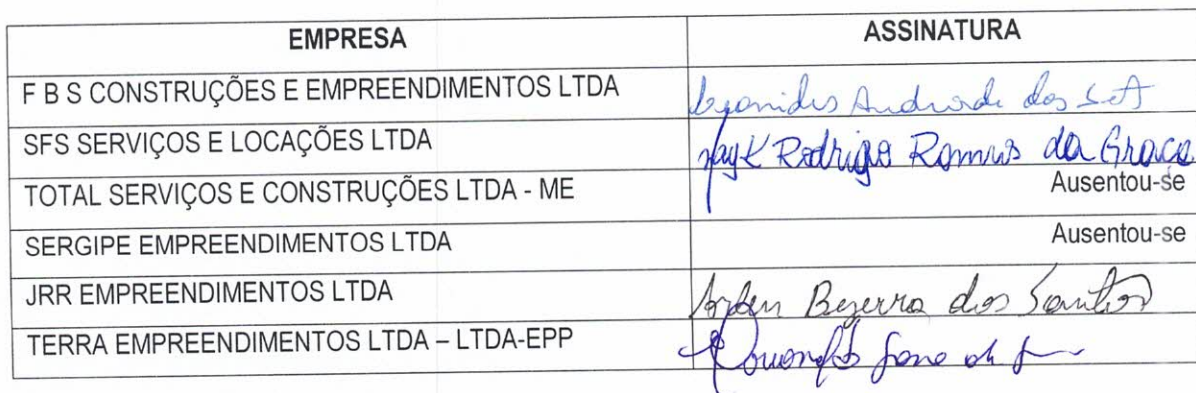 EMPRESA ASSINATURA
F B S CONSTRUÇÕES E EMPREENDIMENTOS LTDA Andrade dos
SFS SERVIÇOS E LOCAÇÕES LTDA Rodrigo Ramos da Graça
TOTAL SERVIÇOS E CONSTRUÇÕES LTDA - ME Ausentou-se
SERGIPE EMPREENDIMENTOS LTDA Ausentou-se
JRR EMPREENDIMENTOS LTDA Bezerra dos Santos
TERRA EMPREENDIMENTOS LTDA – LTDA-EPP